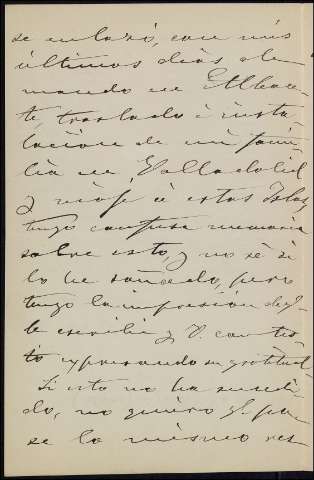 se enlazó, con mis
últimos dias de
mando en Albace-
te, traslado é insta-
lación de mi fami-
lia en Valladolid
y viaje á estas Islas,
tengo confusa memoria
sobre esto, y no sé si
lo he soñado, pero
tengo la impresión de q.
le escribí y V. contes-
tó expresando su gratitud.
Si esto no ha sucedi-
do, no quiero q. pa-
se lo mismo res-